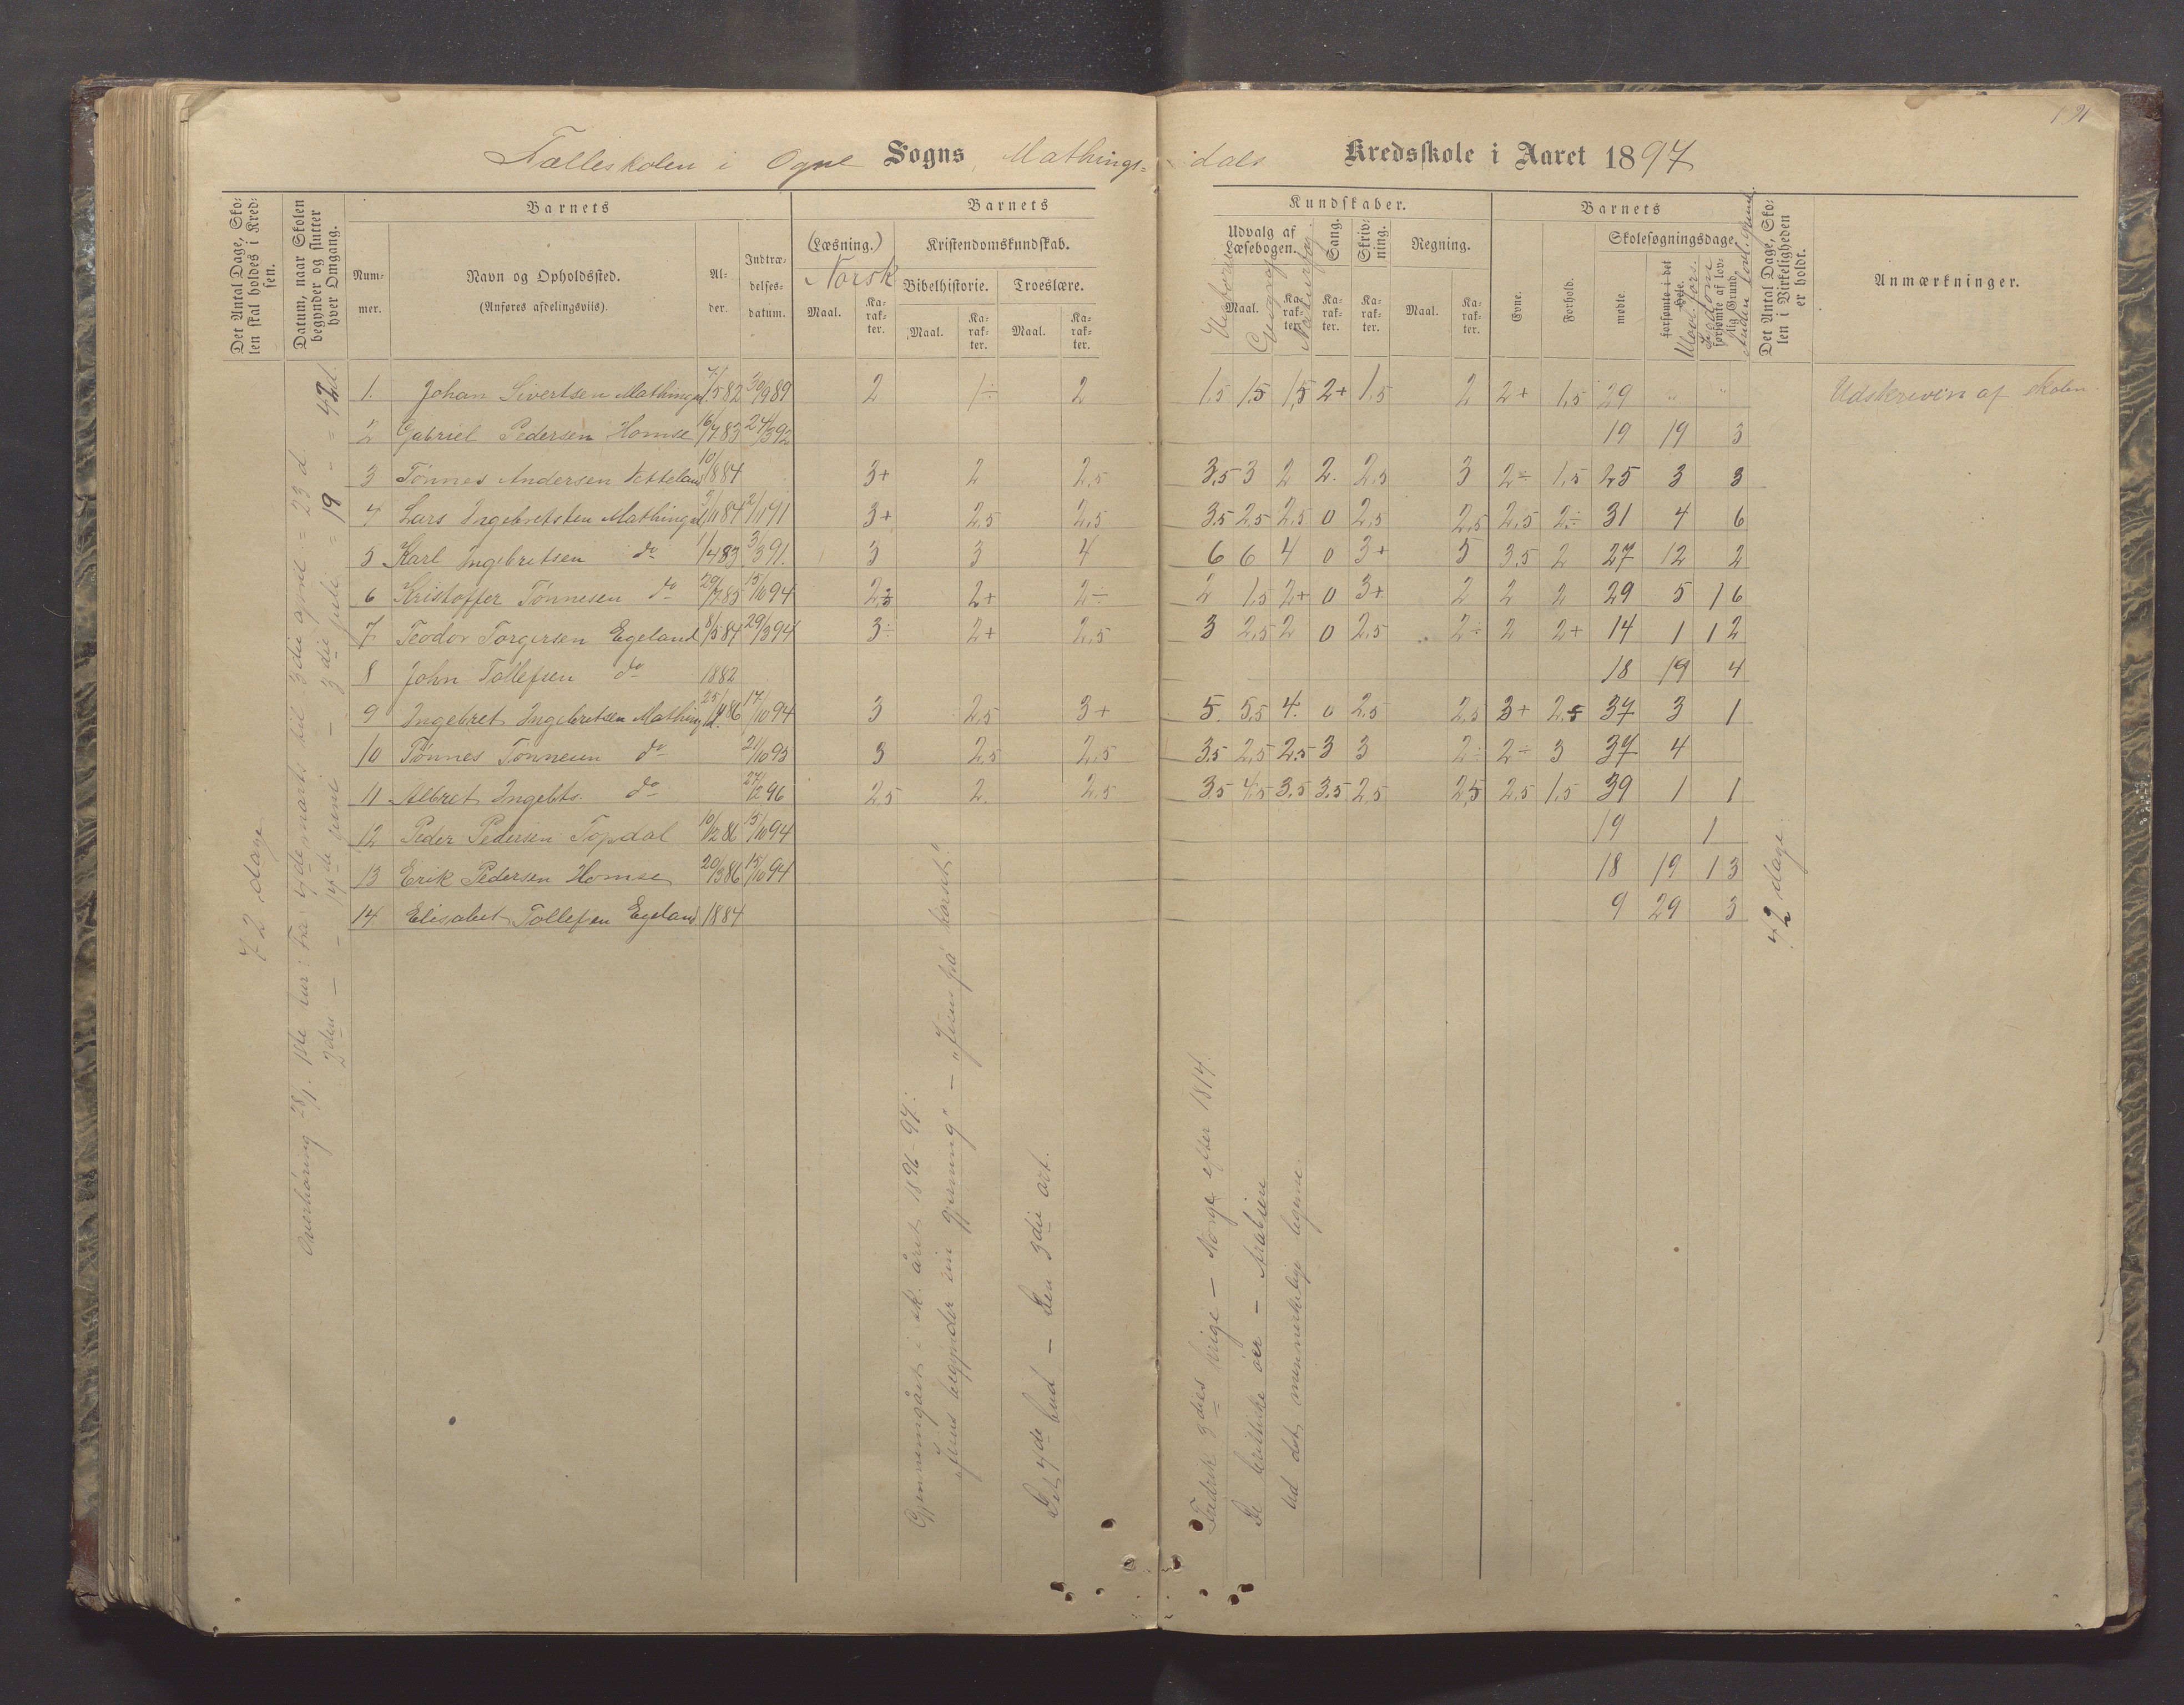 191
Fælleskolen i Ogne Sogns Mathings=dals Kredsskole i Aaret 1897
Det Antal Dage, Skolen skal holdes i Kredsen.
Datum, naar Skolen begynder og slutter hver Omgang.
Barnets
Nummer.
Navn og Opholdssted.
(Anføres afdelingsviis).
Alder.
Indtrædelsesdatum.
Barnets Kundskaber.
(Læsning.) Norsk
Maal. Karakter.
Kristendomskundskab.
Bibelhistorie. Troeslære.
Maal. Karakter. Maal. Karakter.
Udvalg af Læsebogen.
Maal. Karakter.
Geografi Naturfag.
Sang. Karakter.
Skrivning. Karakter.
Regning.
Maal. Karakter.
Barnets
Evne. Forhold.
Skolesøgningsdage.
mødte. forsømte i det Hele. forsømte af lovlig Grund.
Det Antal Dage, Skolen i Virkeligheden er holdt.
Anmærkninger.
1. Johan Sivertsen Mathingsd. 7/5 82 30/9 89 2 1÷ 2 1,5 1,5 1,5 2+ 1,5 2 2+ 1,5 29 " " Udskreven af skolen
2 Gabriel Pedersen Homse 16/7 83 24/3 92 19 19 3
3 Tønnes Andersen Vetteland 10/8 84 3+ 2 2,5 3,5 3 2 2. 2,5 3 2÷ 1,5 25 3 3
4 Lars Ingebretsten Mathingsd. 5/11 84 2/11 91 3+ 2,5 2,5 3,5 2,5 2,5 0 2,5 2,5 2,5 2÷ 31 4 6
5 Karl Ingebretsen do 1/4 83 3/3 91. 3 3 4 6 6 4 0 3+ 5 3,5 2 27 12 2
6 Kristoffer Tønnesen do 29/7 85 15/10 94 2,5 2+ 2÷ 2 1,5 2+ 0 3+ 2 2 2 29 5 16
7 Teodor Torgersen Egeland 8/5 84 29/3 94 3÷ 2+ 2,5 3 2,5 2 0 2,5 2÷ 2 2+ 14 1 12
8 John Tollefsen do 1882 18 19 4
9 Ingebret Ingebretsen Mathingsd. 25/4 86 17/10 94 3 2,5 3+ 5. 5,5 4. 0 2,5 2,5 3+ 2,5 37 3 1
10 Tønnes Tønnesen do 21/10 95 3 2,5 2,5 3,5 2,5 2,5 3 3 2÷ 2÷ 3 37 4
11 Albret Ingebts. do 27/12 96 2,5 2. 2,5 3,5 4,5 3,5 3,5 2,5 2,5 2,5 1,5 39 1 1
12 Peder Pedersen Topdal 10/12 86 15/10 94 19 1
13 Erik Pedersen Homse 20/3 86 15/10 94 18 19 13
14. Elisabet Tollefsen Egeland 1884 9 29 3
72 dage
1ste tur: Fra 9de marts til 3die april = 23 d
2den – 14de juni – 3die juli = 19 – = 42 d.
Overhøring 28/7.
Gjennemgået i sk. året 1896-97:
"Jesus begynder sin gjerning" – "Jesus på korset."
Det 4de bud – Den 3die art.
Fredrik 3dies krige – Norge efter 1814.
De britiske øer – Arabien
42 dage